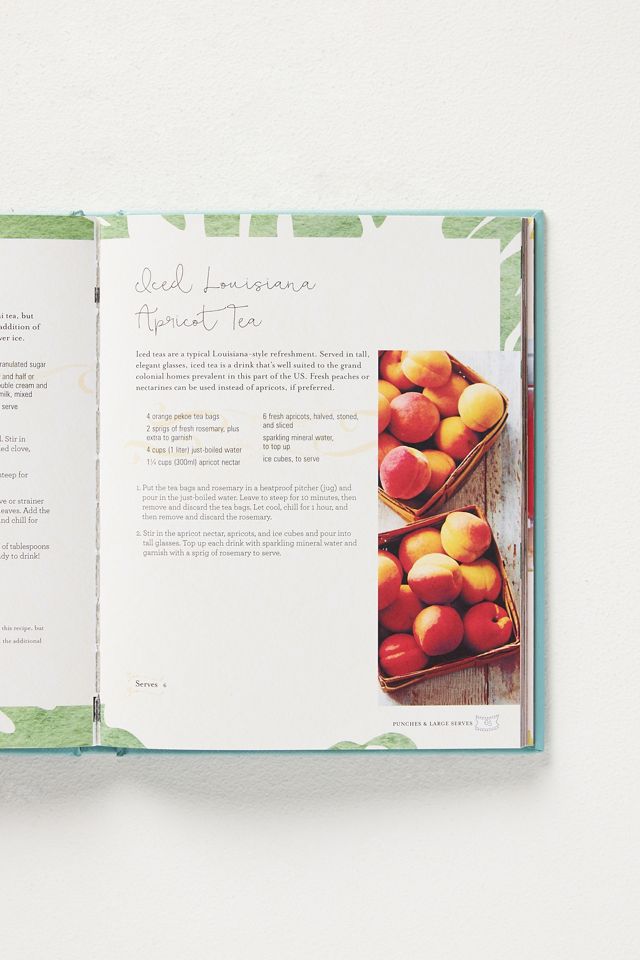 ni tea, but
addition of
ver ice.
granulated sugar
and half or
double cream and
milk, mixed
serve
l. Stir in
ed clove,
steep for
ve or strainer
leaves. Add the
nd chill for
of tablespoons
dy to drink!
this recipe, but
the additional
Iced Louisiana
Apricot Tea
Iced teas are a typical Louisiana-style refreshment. Served in tall,
elegant glasses, iced tea is a drink that's well suited to the grand
colonial homes prevalent in this part of the US. Fresh peaches or
nectarines can be used instead of apricots, if preferred.
4 orange pekoe tea bags
2 sprigs of fresh rosemary, plus
extra to garnish
4 cups (1 liter) just-boiled water
1¼ cups (300ml) apricot nectar
6 fresh apricots, halved, stoned,
and sliced
sparkling mineral water,
to top up
ice cubes, to serve
1. Put the tea bags and rosemary in a heatproof pitcher (jug) and
pour in the just-boiled water. Leave to steep for 10 minutes, then
remove and discard the tea bags. Let cool, chill for 1 hour, and
then remove and discard the rosemary.
2. Stir in the apricot nectar, apricots, and ice cubes and pour into
tall glasses. Top up each drink with sparkling mineral water and
garnish with a sprig of rosemary to serve.
Serves 6
PUNCHES & LARGE SERVES